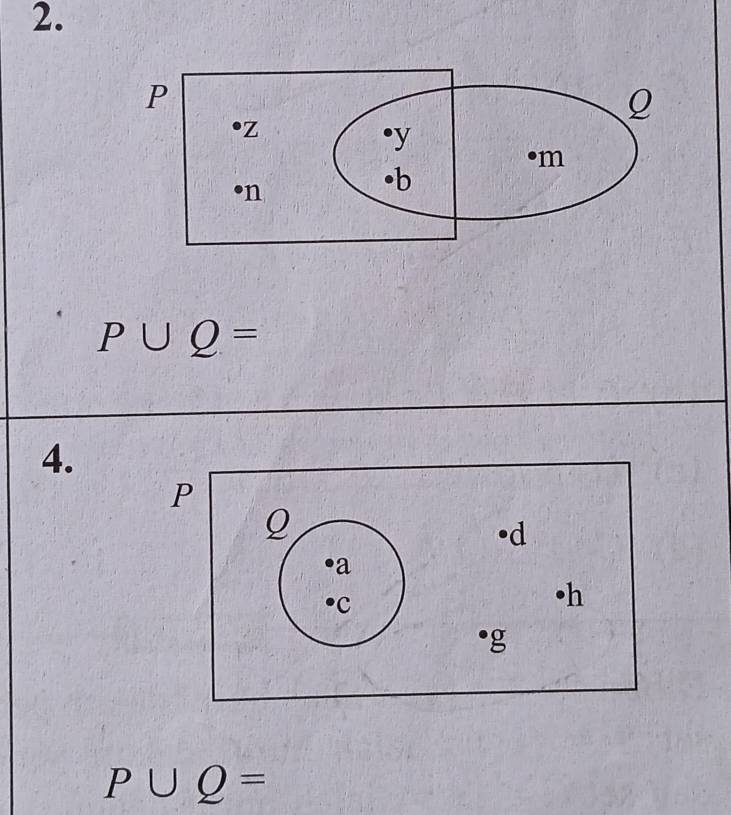 2.
P Q
•z •y •m
•n •b
P ∪ Q =
4.
P
Q •d
•a
•c •h
•g
P ∪ Q =